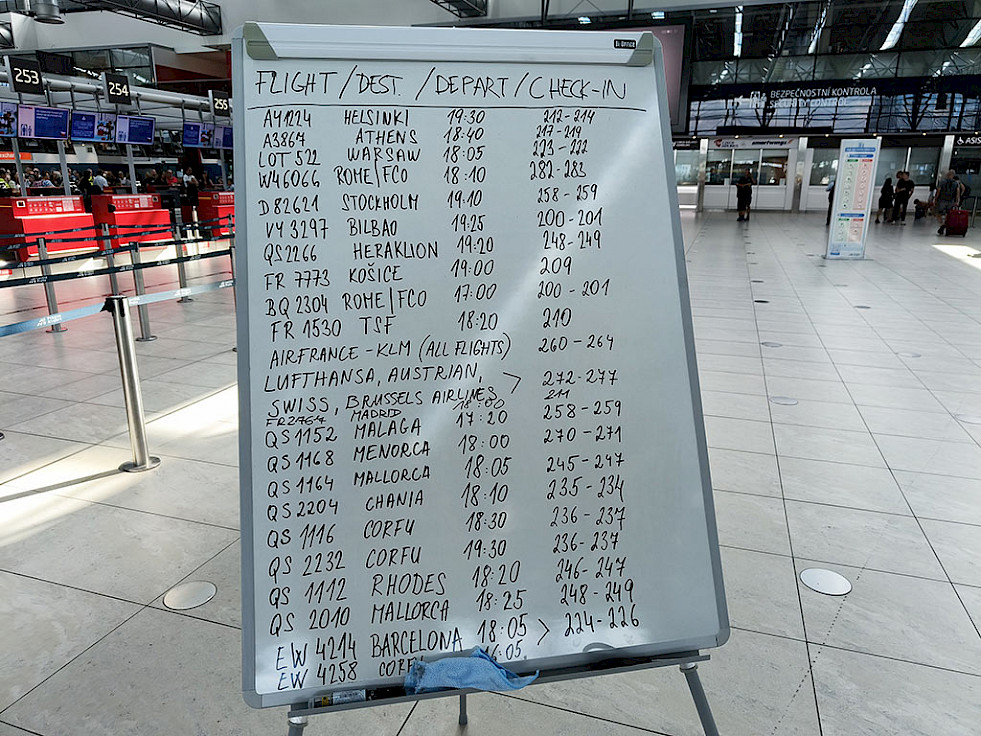 253
254
255
BEZPEČNOSTNÍ KONTROLA
SECURITY CONTROL
FLIGHT / DEST. / DEPART / CHECK-IN
AY1224 HELSINKI 19:30 212-214
A3867 ATHENS 18:40 217-219
LOT 522 WARSAW 18:05 223-222
W46066 ROME|FCO 18:10 282-283
D82621 STOCKHOLM 19:10 258-259
VY 3297 BILBAO 19:25 200-201
QS2266 HERAKLION 19:20 248-249
FR 7773 KOŠICE 19:00 209
BQ 2304 ROME|FCO 17:00 200-201
FR 1530 TSF 18:20 210
AIRFRANCE-KLM (ALL FLIGHTS) 260-264
LUFTHANSA, AUSTRIAN, > 272-277
SWISS, BRUSSELS AIRLINES
FR2764 MADRID 18:00 211
QS 1152 MALAGA 17:20 258-259
QS 1168 MENORCA 18:00 270-271
QS 1164 MALLORCA 18:05 245-247
QS 2204 CHANIA 18:10 235-234
QS 1116 CORFU 18:30 236-237
QS 2232 CORFU 19:30 236-237
QS 1112 RHODES 18:20 246-247
QS 2010 MALLORCA 18:25 248-249
EW 4214 BARCELONA 18:05 > 224-226
EW 4258 CORF 16:05